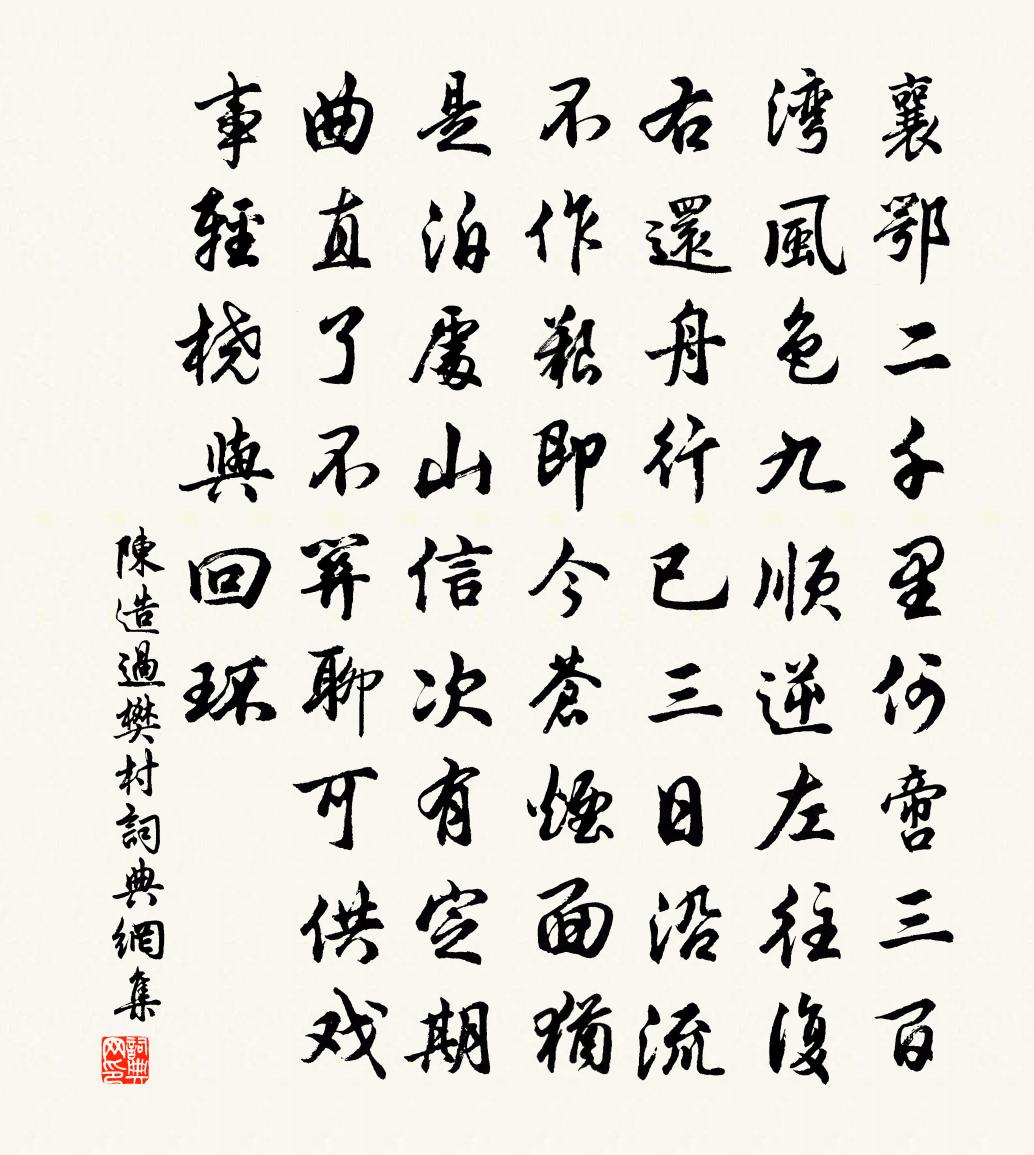 襄鄂二千里何啻三百
湾風色九順逆左往復
右還舟行已三日沿流
不作艱即今蒼煙面猶
是泊處山信次有定期
曲直了不筭聊可供戏
事輕橈與回環
陳造過樊村詞典網集
詞典网印